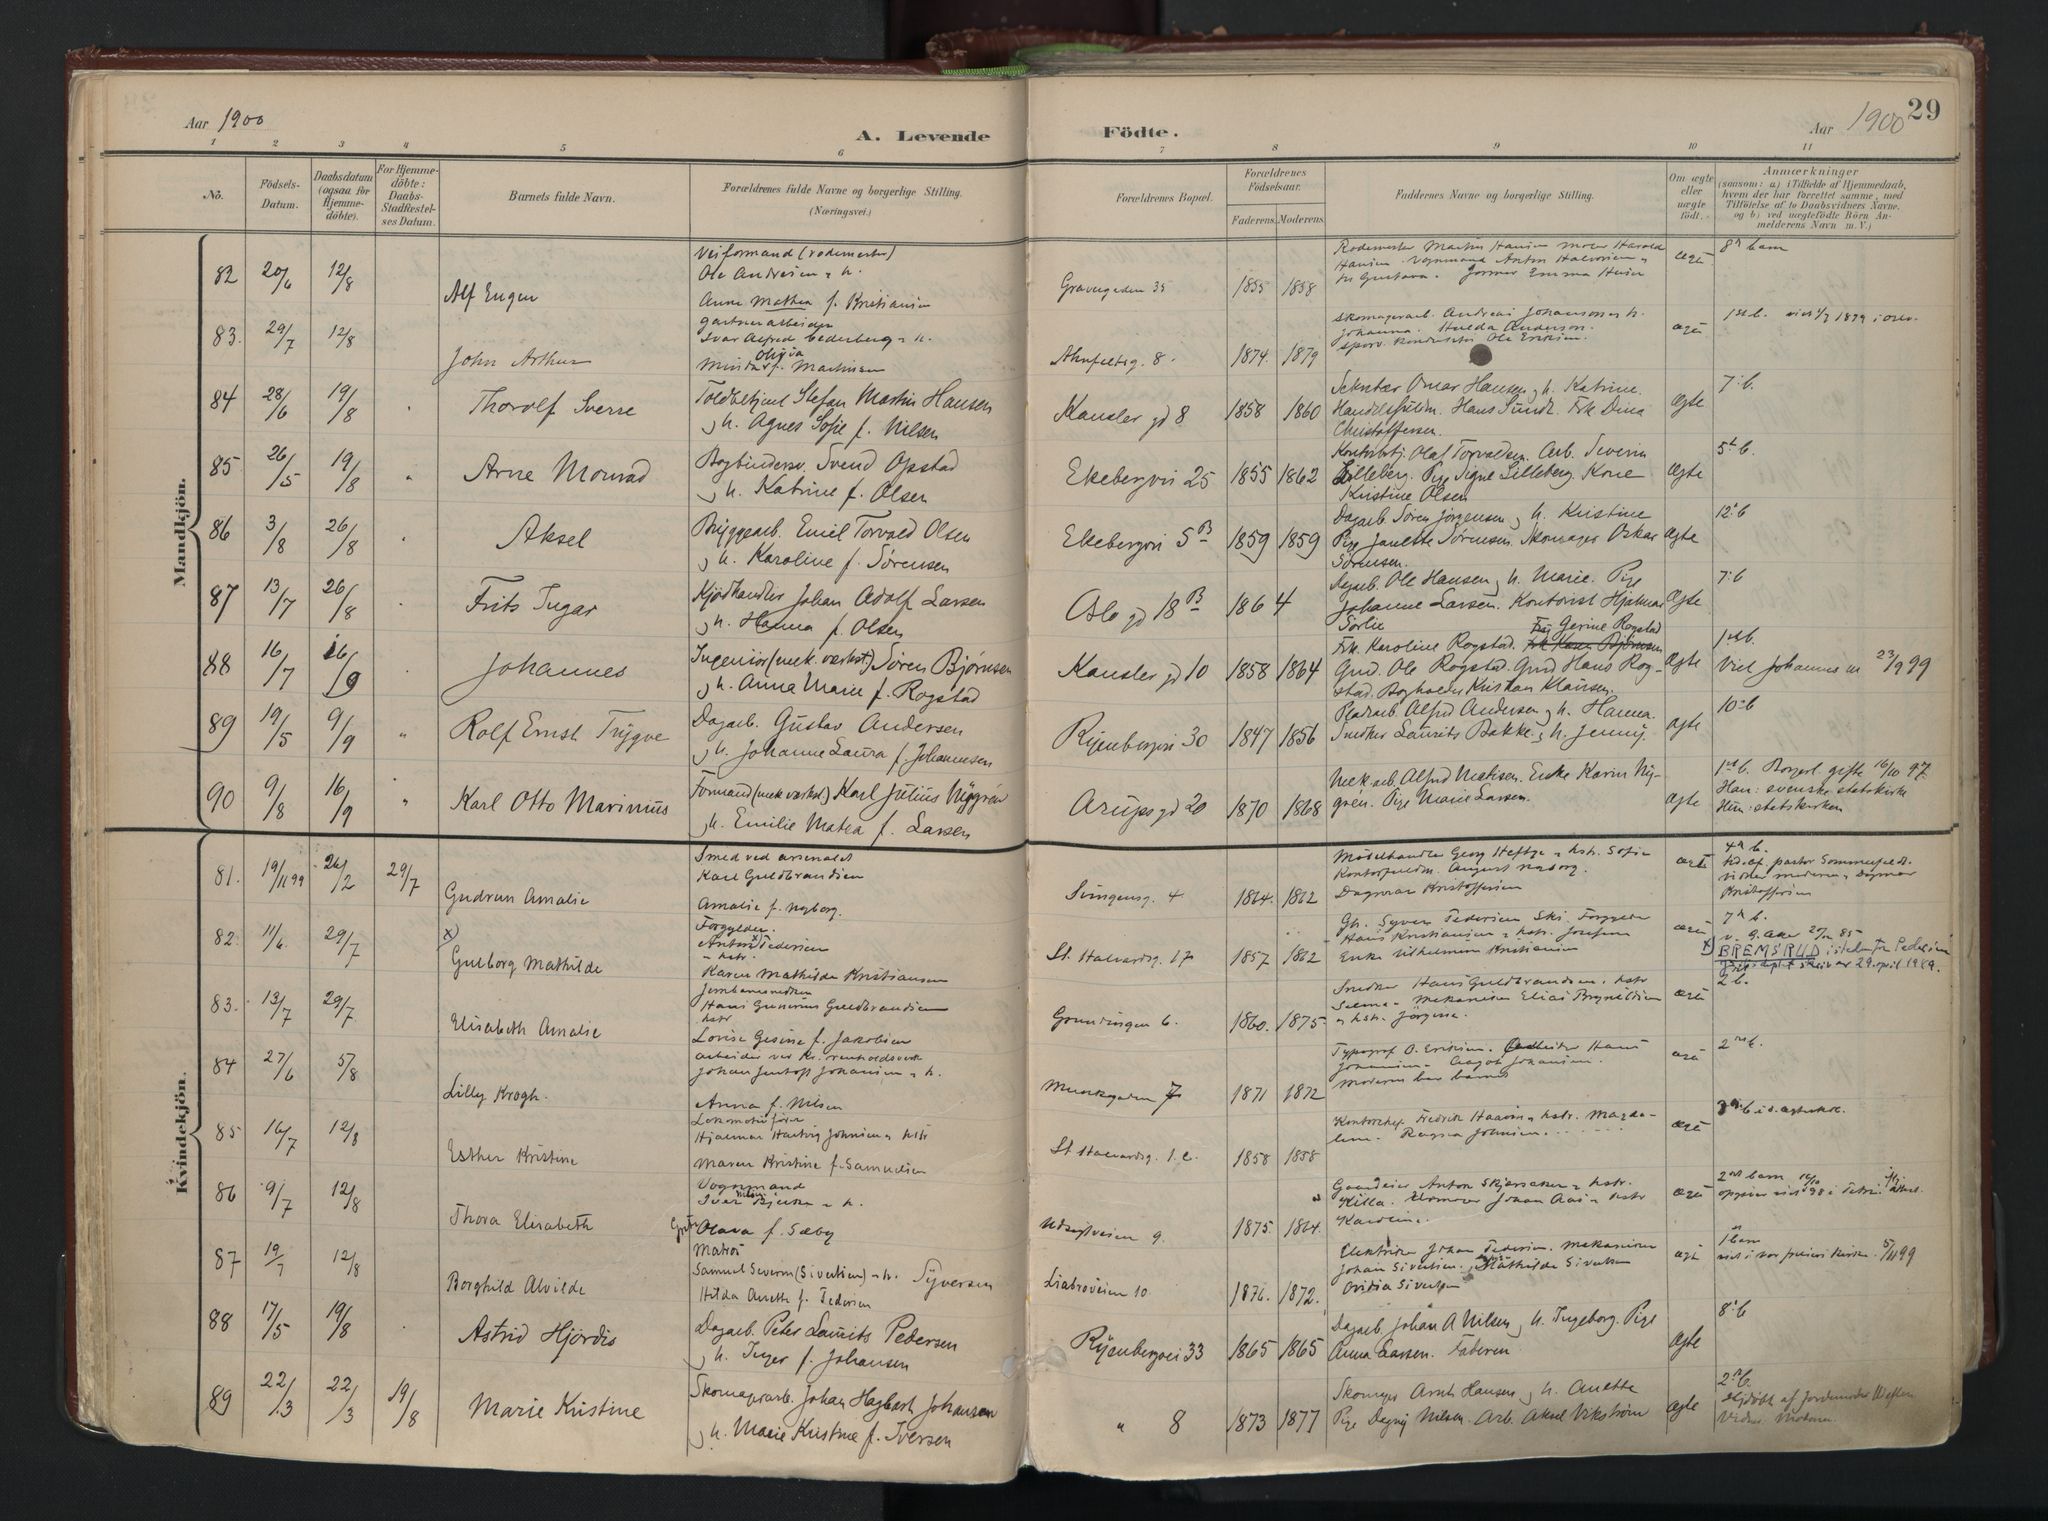 Aar 1900
A. Levende
Födte.
Aar 1900
29
1 2 3 4 5 6 7 8 9 10 11
No.
Födsels-
Datum.
Daabsdatum
(ogsaa för
Hjemme-
döbte).
For Hjemme-
döbte:
Daabs-
Stadfæstel-
ses Datum.
Barnets fulde Navn.
Forældrenes fulde Navne og borgerlige Stilling.
(Næringsvei.)
Forældrenes Bopæl.
Forældrenes
Födselsaar.
Faderens. Moderens.
Faddernes Navne og borgerlige Stilling.
Om ægte
eller
uægte
födt.
Anmærkninger
(saasom: a) i Tilfælde af Hjemmedaab,
hvem der har forrettet samme, med
Tilföielse af to Daabsvidners Navne,
og b) ved uægtefödte Börn An-
melderens Navn m. V.)
Mandkjön.
82 20/6 12/8
Alf Eugen
Veiformand (rodemester)
Ole Andresen & h.
Anne Mathea f. Kristiansen
Gravergaden 35 1855 1858
Rodemester Martin Hansen Harald
Hansen. Vognmand Anton Halvorsen &
h. Gustava. Jomfr Emma
ægte
8de barn
83. 29/7 12/8
John Arthur
gartnerarbeider
Ivar Alfred Cederberg & h.
Minda Oliva f. Martinsen
Ahnfeltsg. 8. 1874. 1879
Skomagerarb. Andreas Johansson & h.
Johanna. Hulda Anderson.
Sporv. konduktör Ole Eriksen.
ægte
1ste b. 1899 i
84 28/6 19/8
Thorolf Sverre
Toldbetjent Stefan Martin Hansen
& h. Agnes Sofie f. Nilsen
Kansler gd 8 1858 1860
Sekretær Omar Hansen & h. Katrine.
Handelsfuldm. Hans Sundt. Frk Dina
Christoffersen.
ægte
7. b.
85. 26/5 19/8 "
Arne Monrad
Bogbindersv. Svend Opstad
& h. Katrine f. Olsen
Ekebergvei 25 1855 1862
Kontorbtj. Olaf Torvaldsen. Arb. Severin
Lilleberg. Pige Signe Lilleberg. Kone
Kristine Olsen
ægte
5te b.
86 3/8 26/8
Aksel
Bryggearb. Emil Torvald Olsen
& h. Karoline f. Sørensen
Ekebergvei 5B 1859 1859
Dagarb. Søren Jørgensen & h. Kristine
Pige Janette Sørensen. Skomager Oskar
Sørensen.
ægte
12. b
87 13/7 26/8
Frits Ingar
Kjödhandler Johan Adolf Larsen
& h. Hanna f. Olsen
Oslo gd 18B 1864
Dagarb. Ole Hansen & h. Marie. Pige
Johanne Larsen. Kontorist Hjalmar
Sørlie
ægte
7. b
88 16/7 16/9
Johannes
Ingeniør (mek. værkst.) Søren Bjørnsen
& h. Anna Marie f. Rogstad
Kansler gd 10 1858 1864
Frk. Karoline Rogstad. Gerine Rogstad
Gmd. Ole Rogstad. Gmd Hans Rog-
stad. Bogholder Kristian Klausen.
ægte
1ste b.
Viet Johannes m 23/9 99
89 19/5 9/9 "
Rolf Ernst Trygve
Dagarb. Gustav Andersen
& h. Johanne Laura f. Johannesen
Ryenbergvei 30 1847 1856
Pladearb. Alfred Andersen & h. Hanna.
Snedker Laurits Bakke & h. Jenny
ægte
10. b
90 9/8 16/9 "
Karl Otto Marinius
Formand (mek værkst.) Karl Julius Nygrén
& h. Emilie Matea f. Larsen
Arups gd 20 1870 1868
Mek arb. Alfred Matisen. Enke Karin Ny-
grén. Pige Marie Larsen.
ægte
1ste b. Borgerl. gifte 16/10 97
Han: svenske statskirke
Hun: statskirken
Kvindekjön.
81. 19/11 99 26/2 29/7
Gudrun Amalie
Smed ved arsenalet
Karl Guldbrandsen
Amalie f. Nyborg.
Svingensg. 4. 1864. 1862
Møbelhandler Georg Heftye & hstr. Sofie
Kontorfuldm. August Nyborg.
Dagmar Kristoffersen
ægte
4de b.
hd. af pastor Sommerfeldt.
vidner moderen & Dagmar
Kristoffersen
82. 11/6. 29/7
x)
Gulborg Mathilde
Forgylder.
Anton x Pedersen
& hstr.
Karen Mathilde Kristiansen
St. Halvardsg. 17 1857 1862
Gb. Syver Pedersen Ski. Forgylder
Hans Kristiansen & hstr. Josefine
Enke Vilhelmine Kristiansen
ægte
7de b.
v. Ø. Aker 27/12 85
x) BREMSRUD istedenfor Pedersen
Just. dept. skriv av 29. april 1949.
83. 13/7 29/7
Elisabeth Amalie
Jernbanesnedker
Hans Gunerius Guldbrandsen
hstr
Lovise Gesine f. Jakobsen
Grønningen 6. 1860. 1875.
Snedker Hans Guldbrandsen & hstr
Selma. Mekaniker Elias Brynildsen
& hstr. Jørgine.
ægte
2 b.
84 27/6 5/8
Lilly Krogh.
arbeider ved Kr. renholdsverk
Johan Jentoft Johansen & h.
Anna f. Nilsen
Munkegaden 7 1871 1872
Typograf O. Eriksen. Arbeider Hans
Johansen. Aagot Johansen.
Moderen bar barnet
ægte
2det b.
85 16/7 12/8
Esther Kristine
Lokomotivfører
Hjalmar Hartvig Johnsen & hstr
Maren Kristine f. Samuelsen
St Halvardsg. 1.c. 1858 1858
Kontorchef Fredrik Haavin & hstr. Magda-
lene. Ragna Johnsen.
ægte
86 9/7 12/8
Thora Elisabeth
Vognmand
Ivar Bjerke & h.
Olava f. Sæby
Udsigtveien 9. 1875. 1864.
Gaardeier Anton Skjersaker & hstr.
Hilla. Johan Aas & hstr
Karoline.
ægte
2det barn
opgives viet 16/10 98 i
87 19/7 12/8
Borghild Alvilde
Matros
Samuel Severin (Sivertsen) & h. Syversen
Hilda Anette f. Pedersen
Liabroveien 10 1876. 1872.
Elektriker Johan Pedersen. Mekaniker
Johan Sivertsen. Mathilde Sivertsen
Ovidia Sivertsen
ægte
1 barn
viet i Vor frelsers kirke. 5/11 99
88 17/5 19/8
Astrid Hjördis
Dagarb. Peter Laurits Pedersen
& h. Inger f. Johansen
Ryenbergvei 33 1865 1865
Dagarb. Johan A Nilsen & h. Ingeborg. Pige
Anna Larsen. Faderen.
ægte
8. b
89 22/3 22/3 19/8
Marie Kristine
Skomagerarb. Johan Hagbart Johansen
& h. Marie Kristine f. Iversen
" 8 1873 1877
Skomager Arnt Hansen & h. Anette
Pige Dagny Nilsen. Arb. Aksel Vikström
ægte
2det b.
Hjdöbt af Jordemoder
Vidne: Moderen